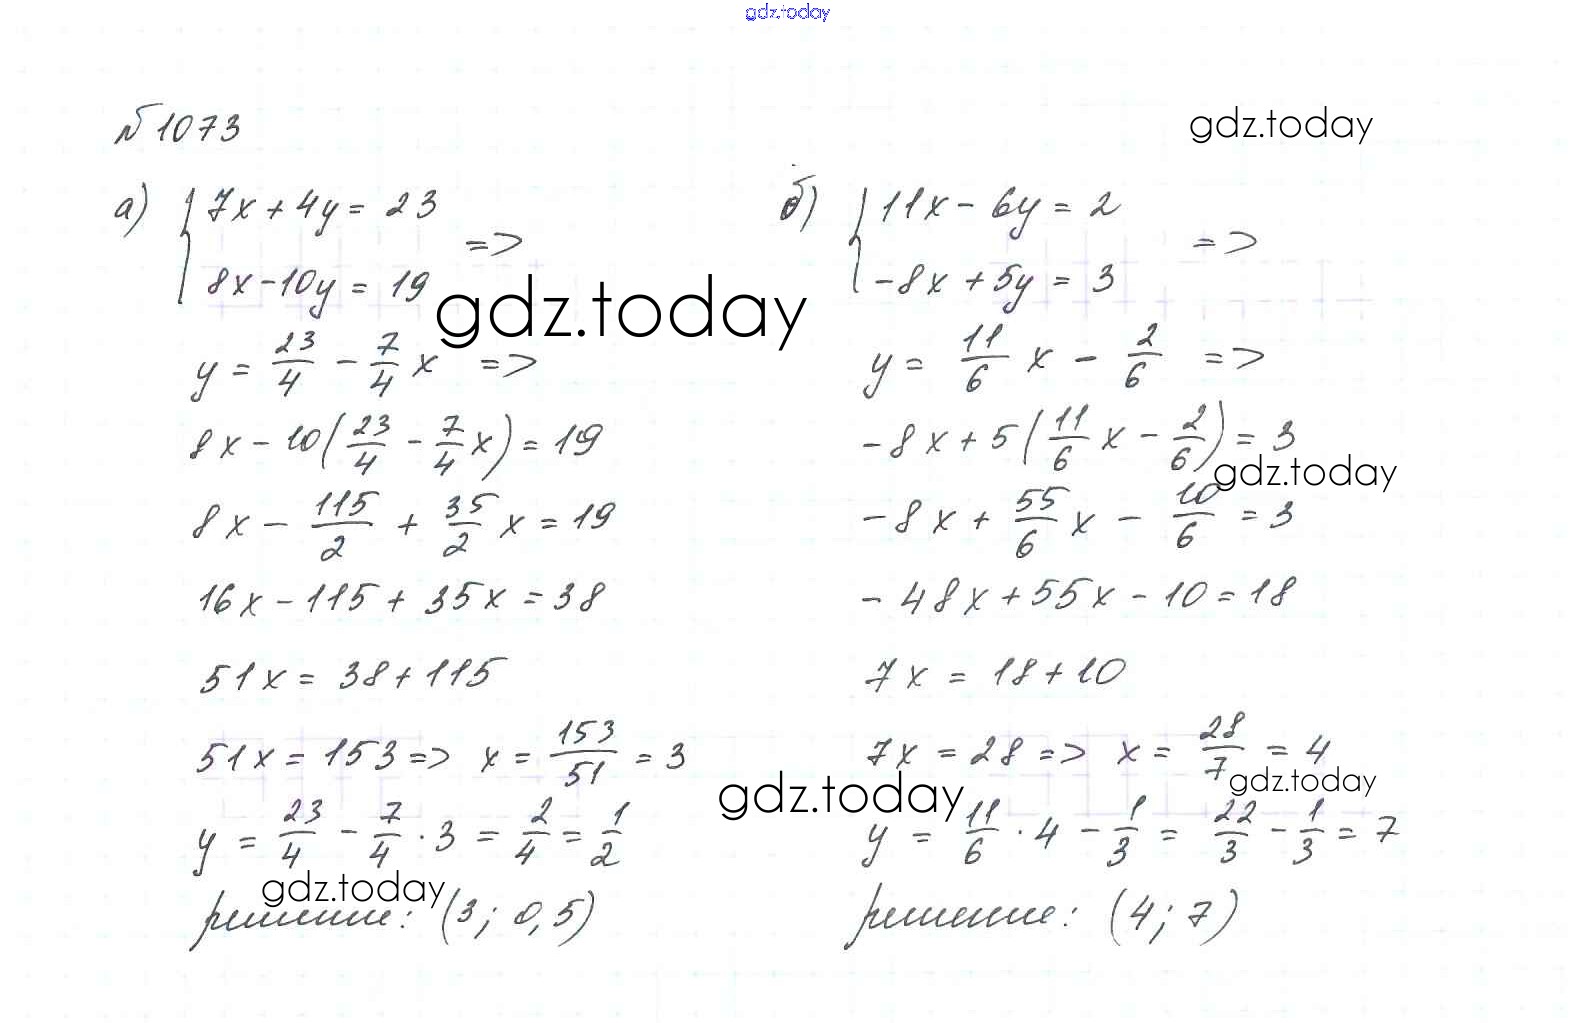 gdz.today
№1073
gdz.today
а) { 7x + 4y = 23
8x - 10y = 19 =>
gdz.today
y = 23/4 - 7/4 x =>
8x - 10(23/4 - 7/4 x) = 19
8x - 115/2 + 35/2 x = 19
16x - 115 + 35x = 38
51x = 38 + 115
51x = 153 => x = 153/51 = 3
gdz.today
y = 23/4 - 7/4 · 3 = 2/4 = 1/2
gdz.today
решение: (3; 0,5)
б) { 11x - 6y = 2
-8x + 5y = 3 =>
y = 11/6 x - 2/6 =>
-8x + 5(11/6 x - 2/6) = 3
gdz.today
-8x + 55/6 x - 10/6 = 3
-48x + 55x - 10 = 18
7x = 18 + 10
7x = 28 => x = 28/7 = 4
gdz.today
y = 11/6 · 4 - 1/3 = 22/3 - 1/3 = 7
решение: (4; 7)